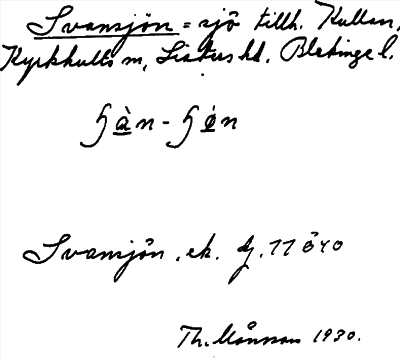 Svansjön = sjö tillh. Kullan,
Kyrkhults sn, Listers hd. Blekinge l.
Svansjön, ek. bl. 11 ö 40
Th. Månsson 1930.